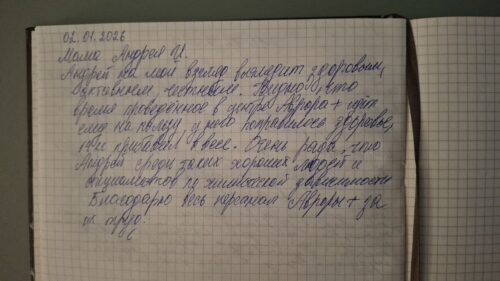 02.01.2026
Мама Андрея Ч.
Андрей на мой взгляд выглядит здоровым,
активным, честным. Видно, что
время проведенное в центре Аврора+ идёт
ему на пользу у него поправилось здоровье,
он прибавил в весе. Очень рада, что
Андрей среди таких хороших людей и
специалистов по химической зависимости
Благодарю весь персонал Авроры+ за
их труд.